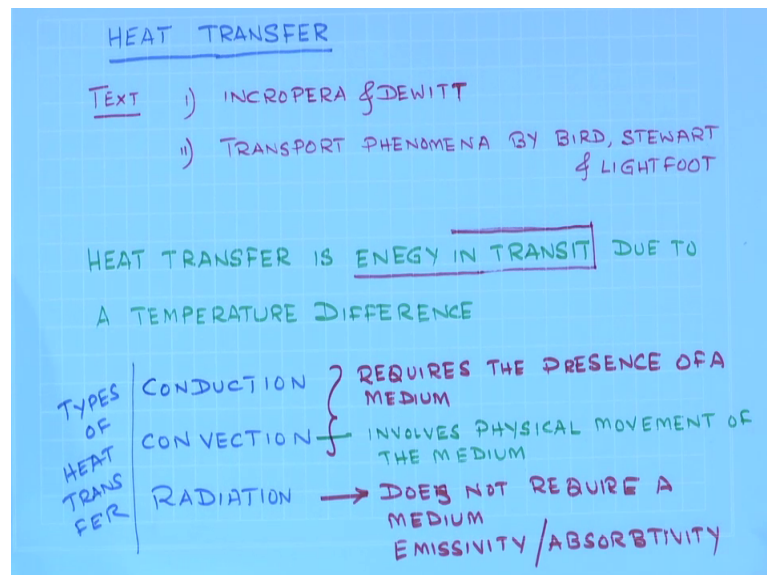 HEAT TRANSFER
TEXT i) INCROPERA & DEWITT
ii) TRANSPORT PHENOMENA BY BIRD, STEWART
& LIGHTFOOT
HEAT TRANSFER IS ENEGY IN TRANSIT DUE TO
A TEMPERATURE DIFFERENCE
TYPES
OF
HEAT
TRANS
FER
CONDUCTION } REQUIRES THE PRESENCE OF A
MEDIUM
CONVECTION — INVOLVES PHYSICAL MOVEMENT OF
THE MEDIUM
RADIATION → DOES NOT REQUIRE A
MEDIUM
EMISSIVITY/ABSORBTIVITY